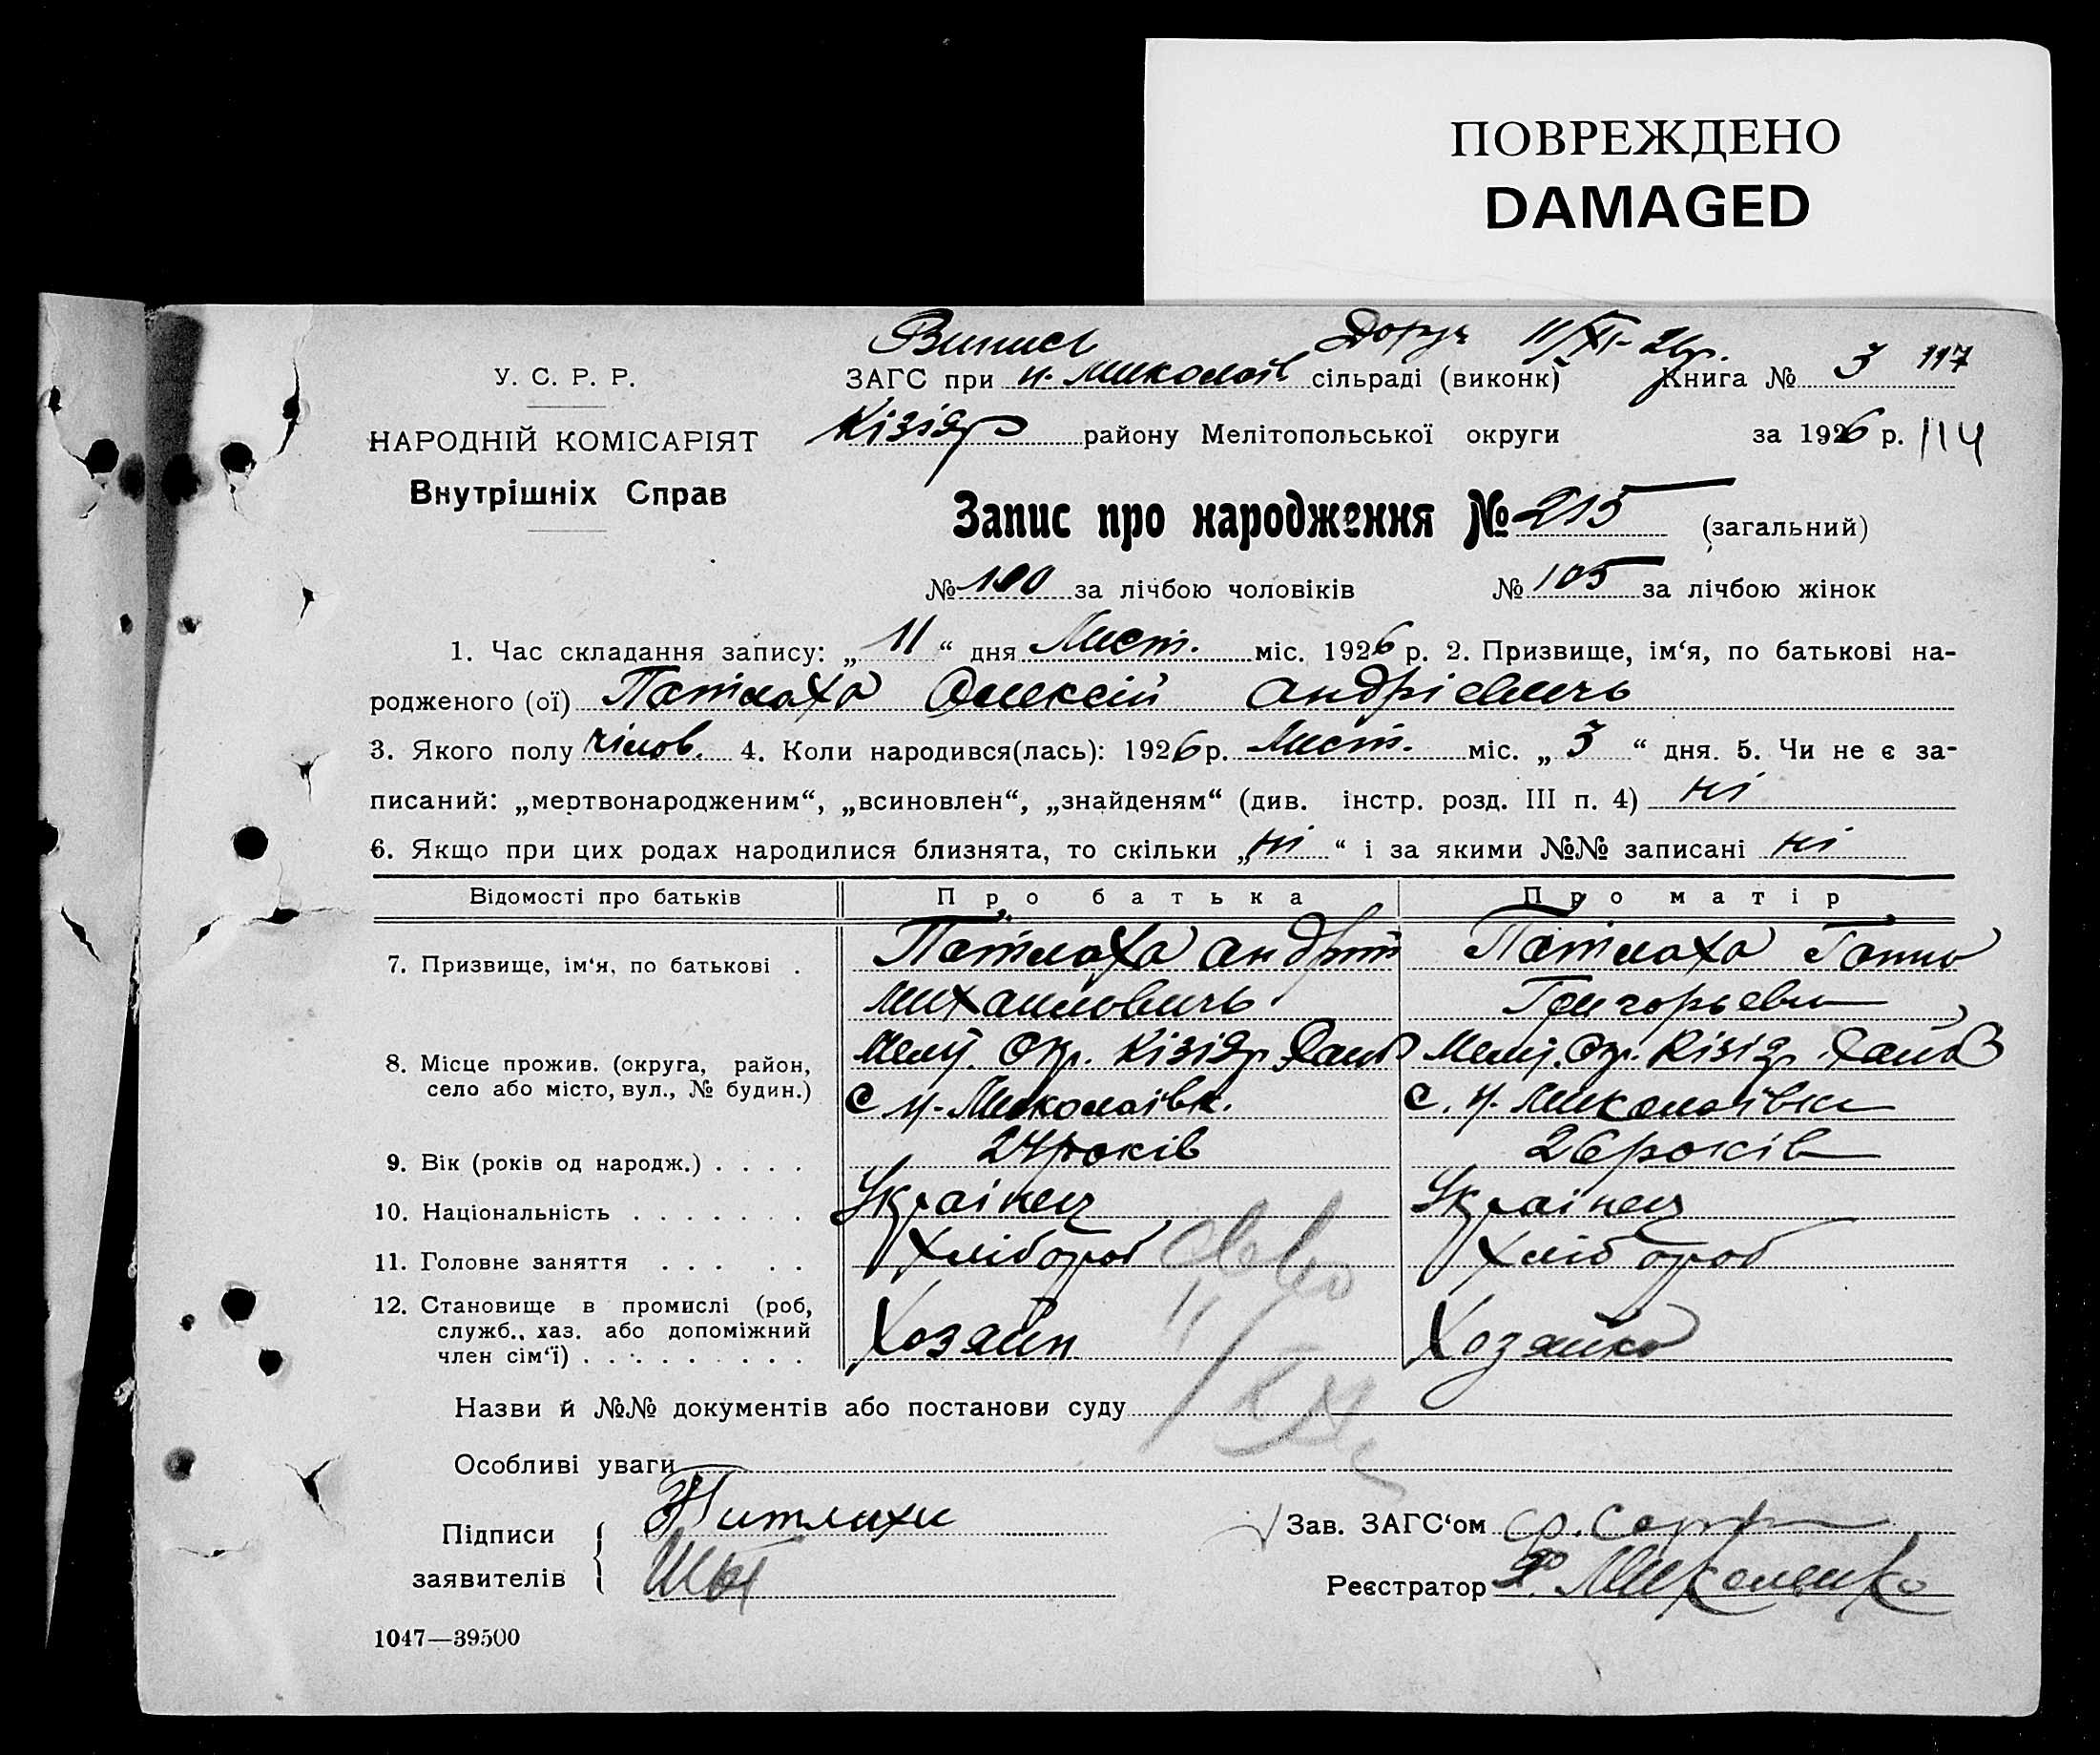 ПОВРЕЖДЕНО
DAMAGED
Випись
11/XI-26р.
У. С. Р. Р.
ЗАГС при н. Миколаїв сільраді (виконк) Книга № 3 117
НАРОДНІЙ КОМІСАРІЯТ
Кізіяр району Мелітопольської округи за 1926 р. 114
Внутрішніх Справ
Запис про народження № 215 (загальний)
№ 100 за лічбою чоловіків № 105 за лічбою жінок
1. Час складання запису: „ 11 “ дня Лист. міс. 1926 р. 2. Призвище, ім‘я, по батькові на-
родженого (ої) Патлаха Олексій Андрієвичь
3. Якого полу чілов. 4. Коли народився(лась): 1926 р. Лист. міс. „ 3 “ дня. 5. Чи не є за-
писаний: „мертвонародженим“, „всиновлен“, „знайденям“ (див. інстр. розд. III п. 4) ні
6. Якщо при цих родах народилися близнята, то скільки „ ні “ і за якими №№ записані ні
Відомості про батьків Про батька Про матір
7. Призвище, ім‘я, по батькові . Патлаха Андрій Патлаха Ганна
Михаиловичь Григорьевн
8. Місце прожив. (округа, район, Меліт. Окр. Кізіяр Меліт. Окр. Кізіяр
село або місто, вул., № будин.) С н-Миколаївк. С. н. Миколаївки
9. Вік (років од народж.) . . . . 24 років 26 років
10. Національність . . . . . . . Українец Українец
11. Головне заняття . . . . . Хлібороб Хлібороб
12. Становище в промислі (роб,
служб., хаз. або допоміжний Хозяин Хозяйка
член сім‘ї) . . . . . . . . .
Назви й №№ документів або постанови суду
Особливі уваги
Підписи Патлаха Зав. ЗАГС‘ом
заявителів Реєстратор
1047—39500